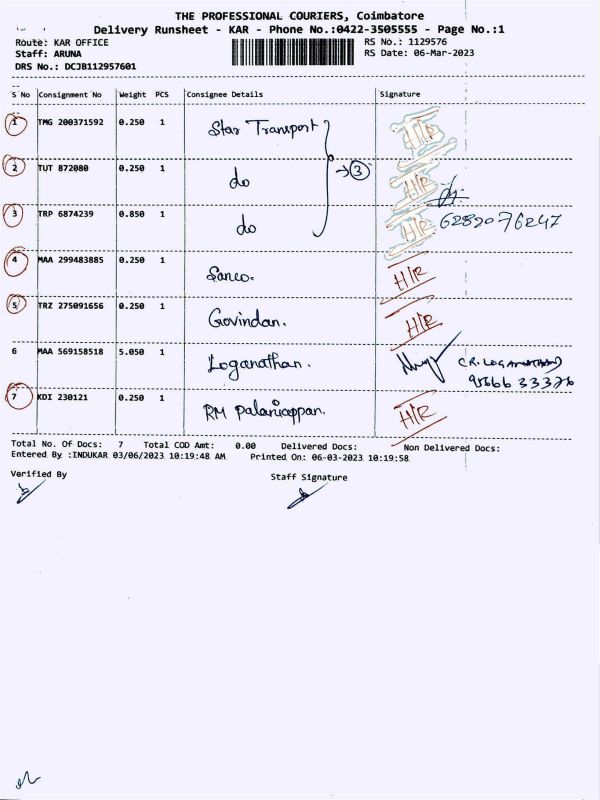 THE PROFESSIONAL COURIERS, Coimbatore
Delivery Runsheet - KAR - Phone No.:0422-3505555 - Page No.:1
Route: KAR OFFICE
RS No.: 1129576
Staff: ARUNA
RS Date: 06-Mar-2023
DRS No.: DCJB112957601
S No Consignment No Weight PCS Consignee Details Signature
1 TMG 200371592 0.250 1 Star Transport H/R
2 TUT 872080 0.250 1 do → 3 H/R
3 TRP 6874239 0.850 1 do H/R 6282076247
4 MAA 299483885 0.250 1 Sanco. H/R
5 TRZ 275091656 0.250 1 Govindan. H/R
6 MAA 569158518 5.050 1 Loganathan.
7 KDI 230121 0.250 1 RM Palaniappan. H/R
Total No. Of Docs: 7 Total COD Amt: 0.00 Delivered Docs: Non Delivered Docs:
Entered By :INDUKAR 03/06/2023 10:19:48 AM Printed On: 06-03-2023 10:19:58
Verified By
Staff Signature